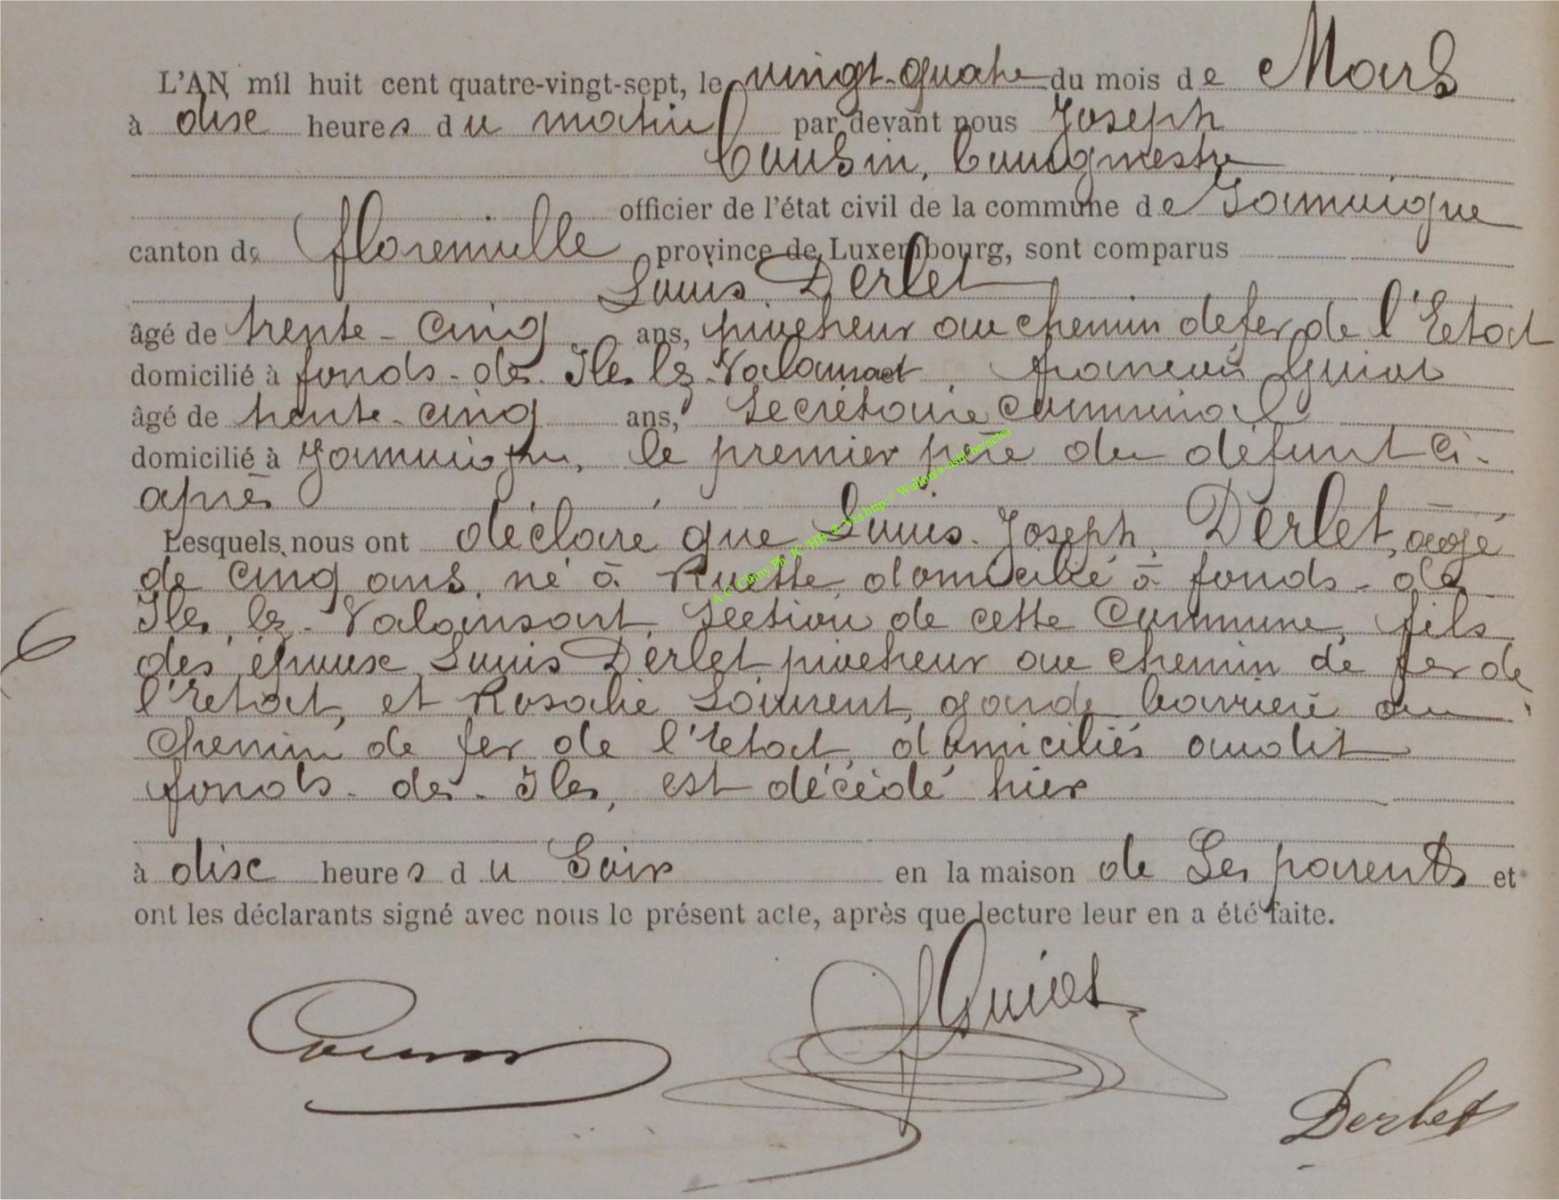 L'AN mil huit cent quatre-vingt-sept, le vingt-quatre du mois de Mars
à dix heures du matin par devant nous Joseph
Cousin, bourgmestre
officier de l'état civil de la commune de Jamoigne
canton de Florenville province de Luxembourg, sont comparus
Louis Derlet
âgé de trente-cinq ans, piocheur au chemin de fer de l'Etat
domicilié à fonds-des-Iles lez-Valansart, francois Guiot
âgé de trente-cinq ans, Secrétaire Communal
domicilié à Jamoigne, le premier père du défunt ci-
après
Lesquels nous ont déclaré que Louis-Joseph Derlet, âgé
de cinq ans, né à Ruette, domicilié à fonds-des
Iles, lez-Valansart, Section de cette Commune, fils
des époux Louis Derlet piocheur au chemin de fer de
l'Etat, et Rosalie Laurent, garde barrière au
Chemin de fer de l'Etat, domiciliés audit
fonds-des-Iles, est décédé hier
6
à dix heures du Soir en la maison de Ses parents et
ont les déclarants signé avec nous le présent acte, après que lecture leur en a été faite.
Cousin
f Guiot
Derlet